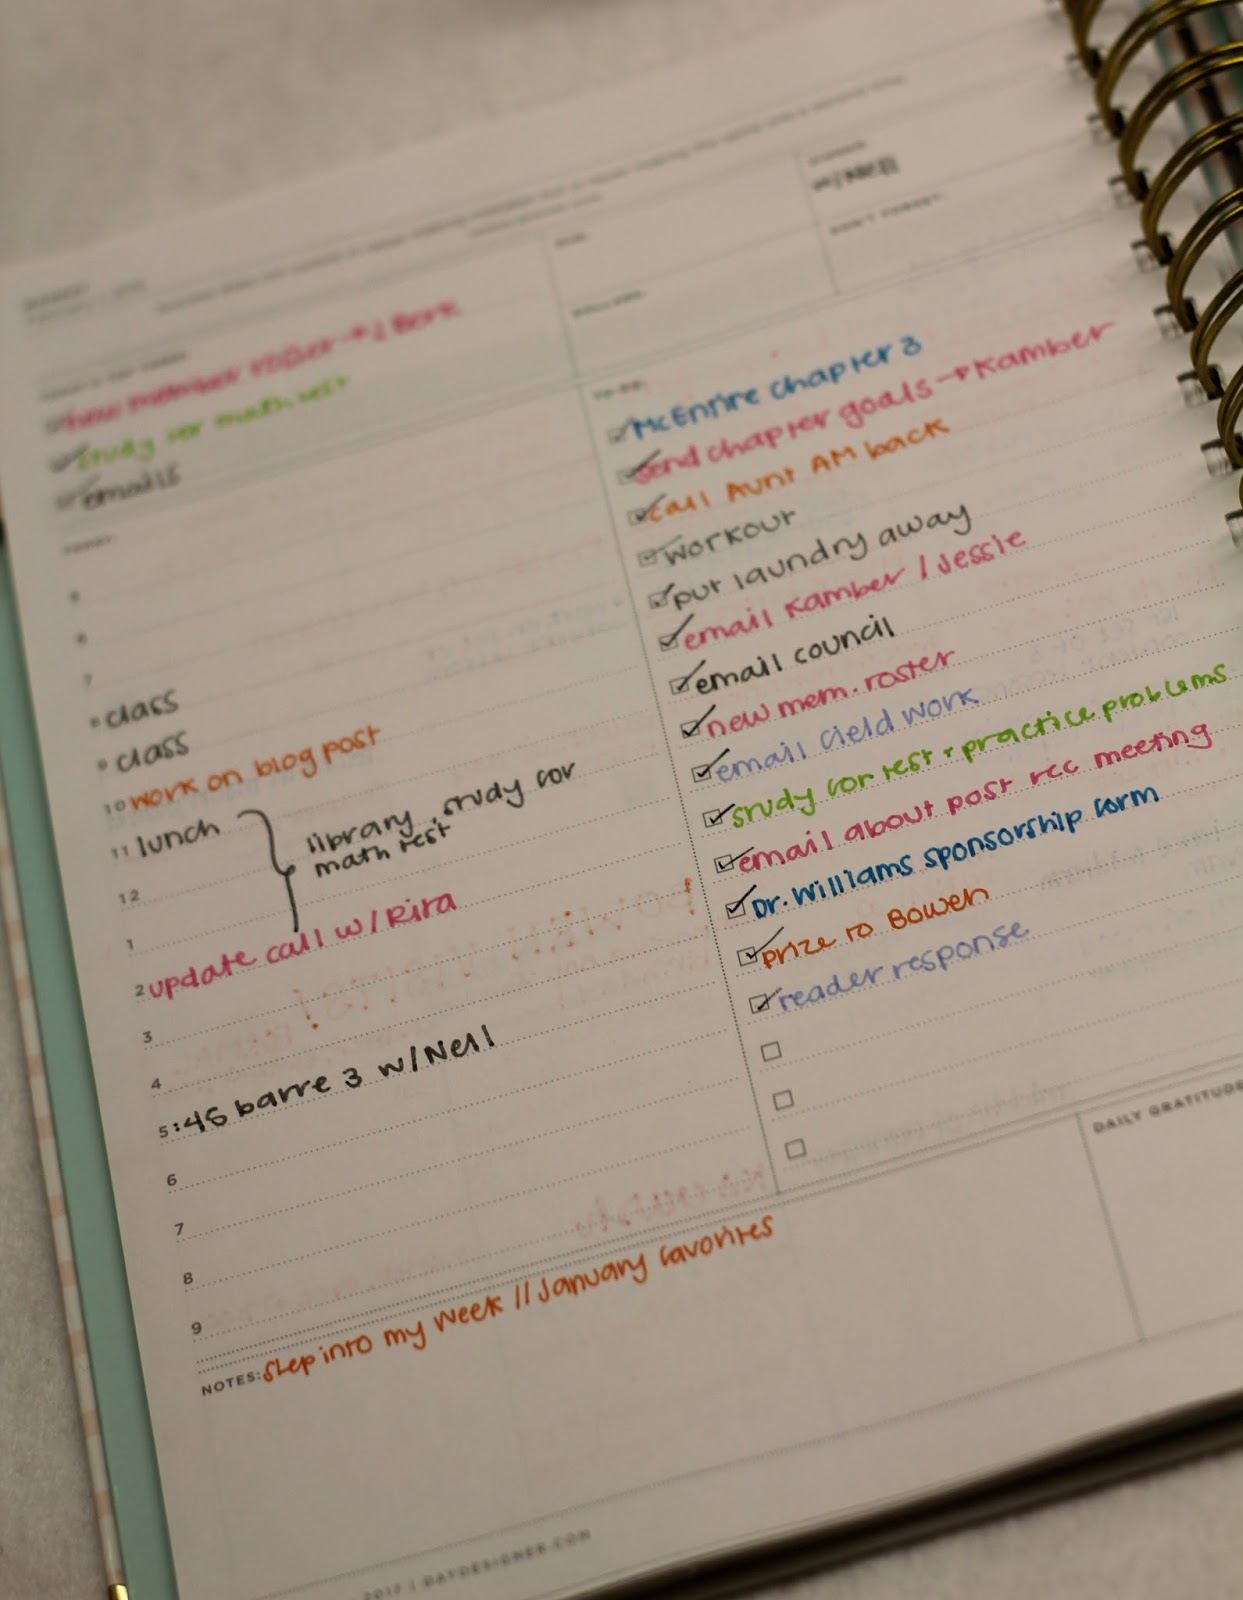 DINNER:
DON'T FORGET:
DUE:
DOLLARS:
TODAY'S TOP THREE
new member
study for math test
emails
TODAY:
5
6
7
8 class
9 class
10 work on blog post
11 lunch
library, study for
math test
12
1
2 update call w/ Rita
3
4
5 :45 barre 3 w/ Nell
6
7
8
9
TO-DO:
McEntire Chapter 3
send chapter goals → Kamber
call Aunt AM back
workout
put laundry away
email Kamber / Jessie
email council
new mem. roster
email field work
study for test + practice problems
email about post rec meeting
Dr. Williams sponsorship form
prize to Bowen
reader response
DAILY GRATITUDE
NOTES: Step into my week // January favorites
2017 | DAYDESIGNER.COM